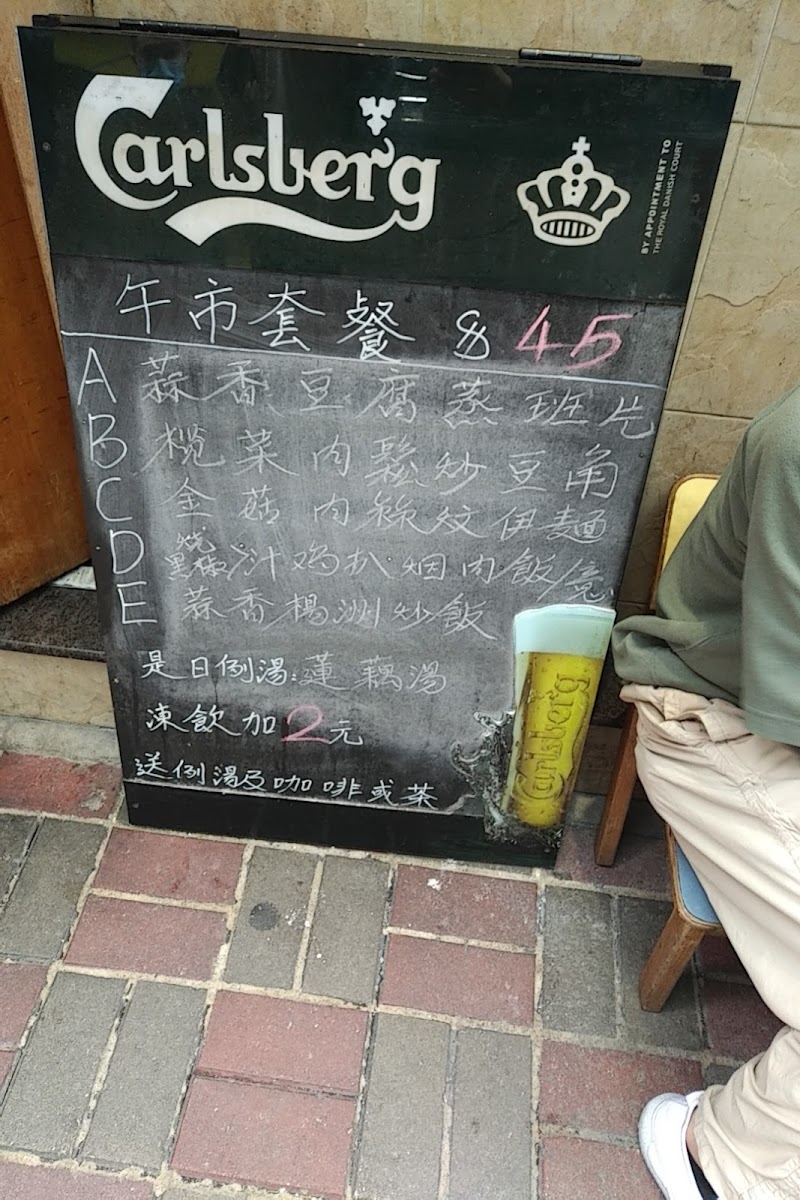 Carlsberg
BY APPOINTMENT TO
THE ROYAL DANISH COURT
午市套餐 $ 45
A 蒜香豆腐蒸班片
B 榄菜肉鬆炒豆角
C 金菇肉絲炆伊麵
D 燒黑椒汁鸡扒烟肉飯/意
E 蒜香楊洲炒飯
是日例湯:蓮藕湯
凍飲加2元
送例湯及咖啡或茶
Carlsberg